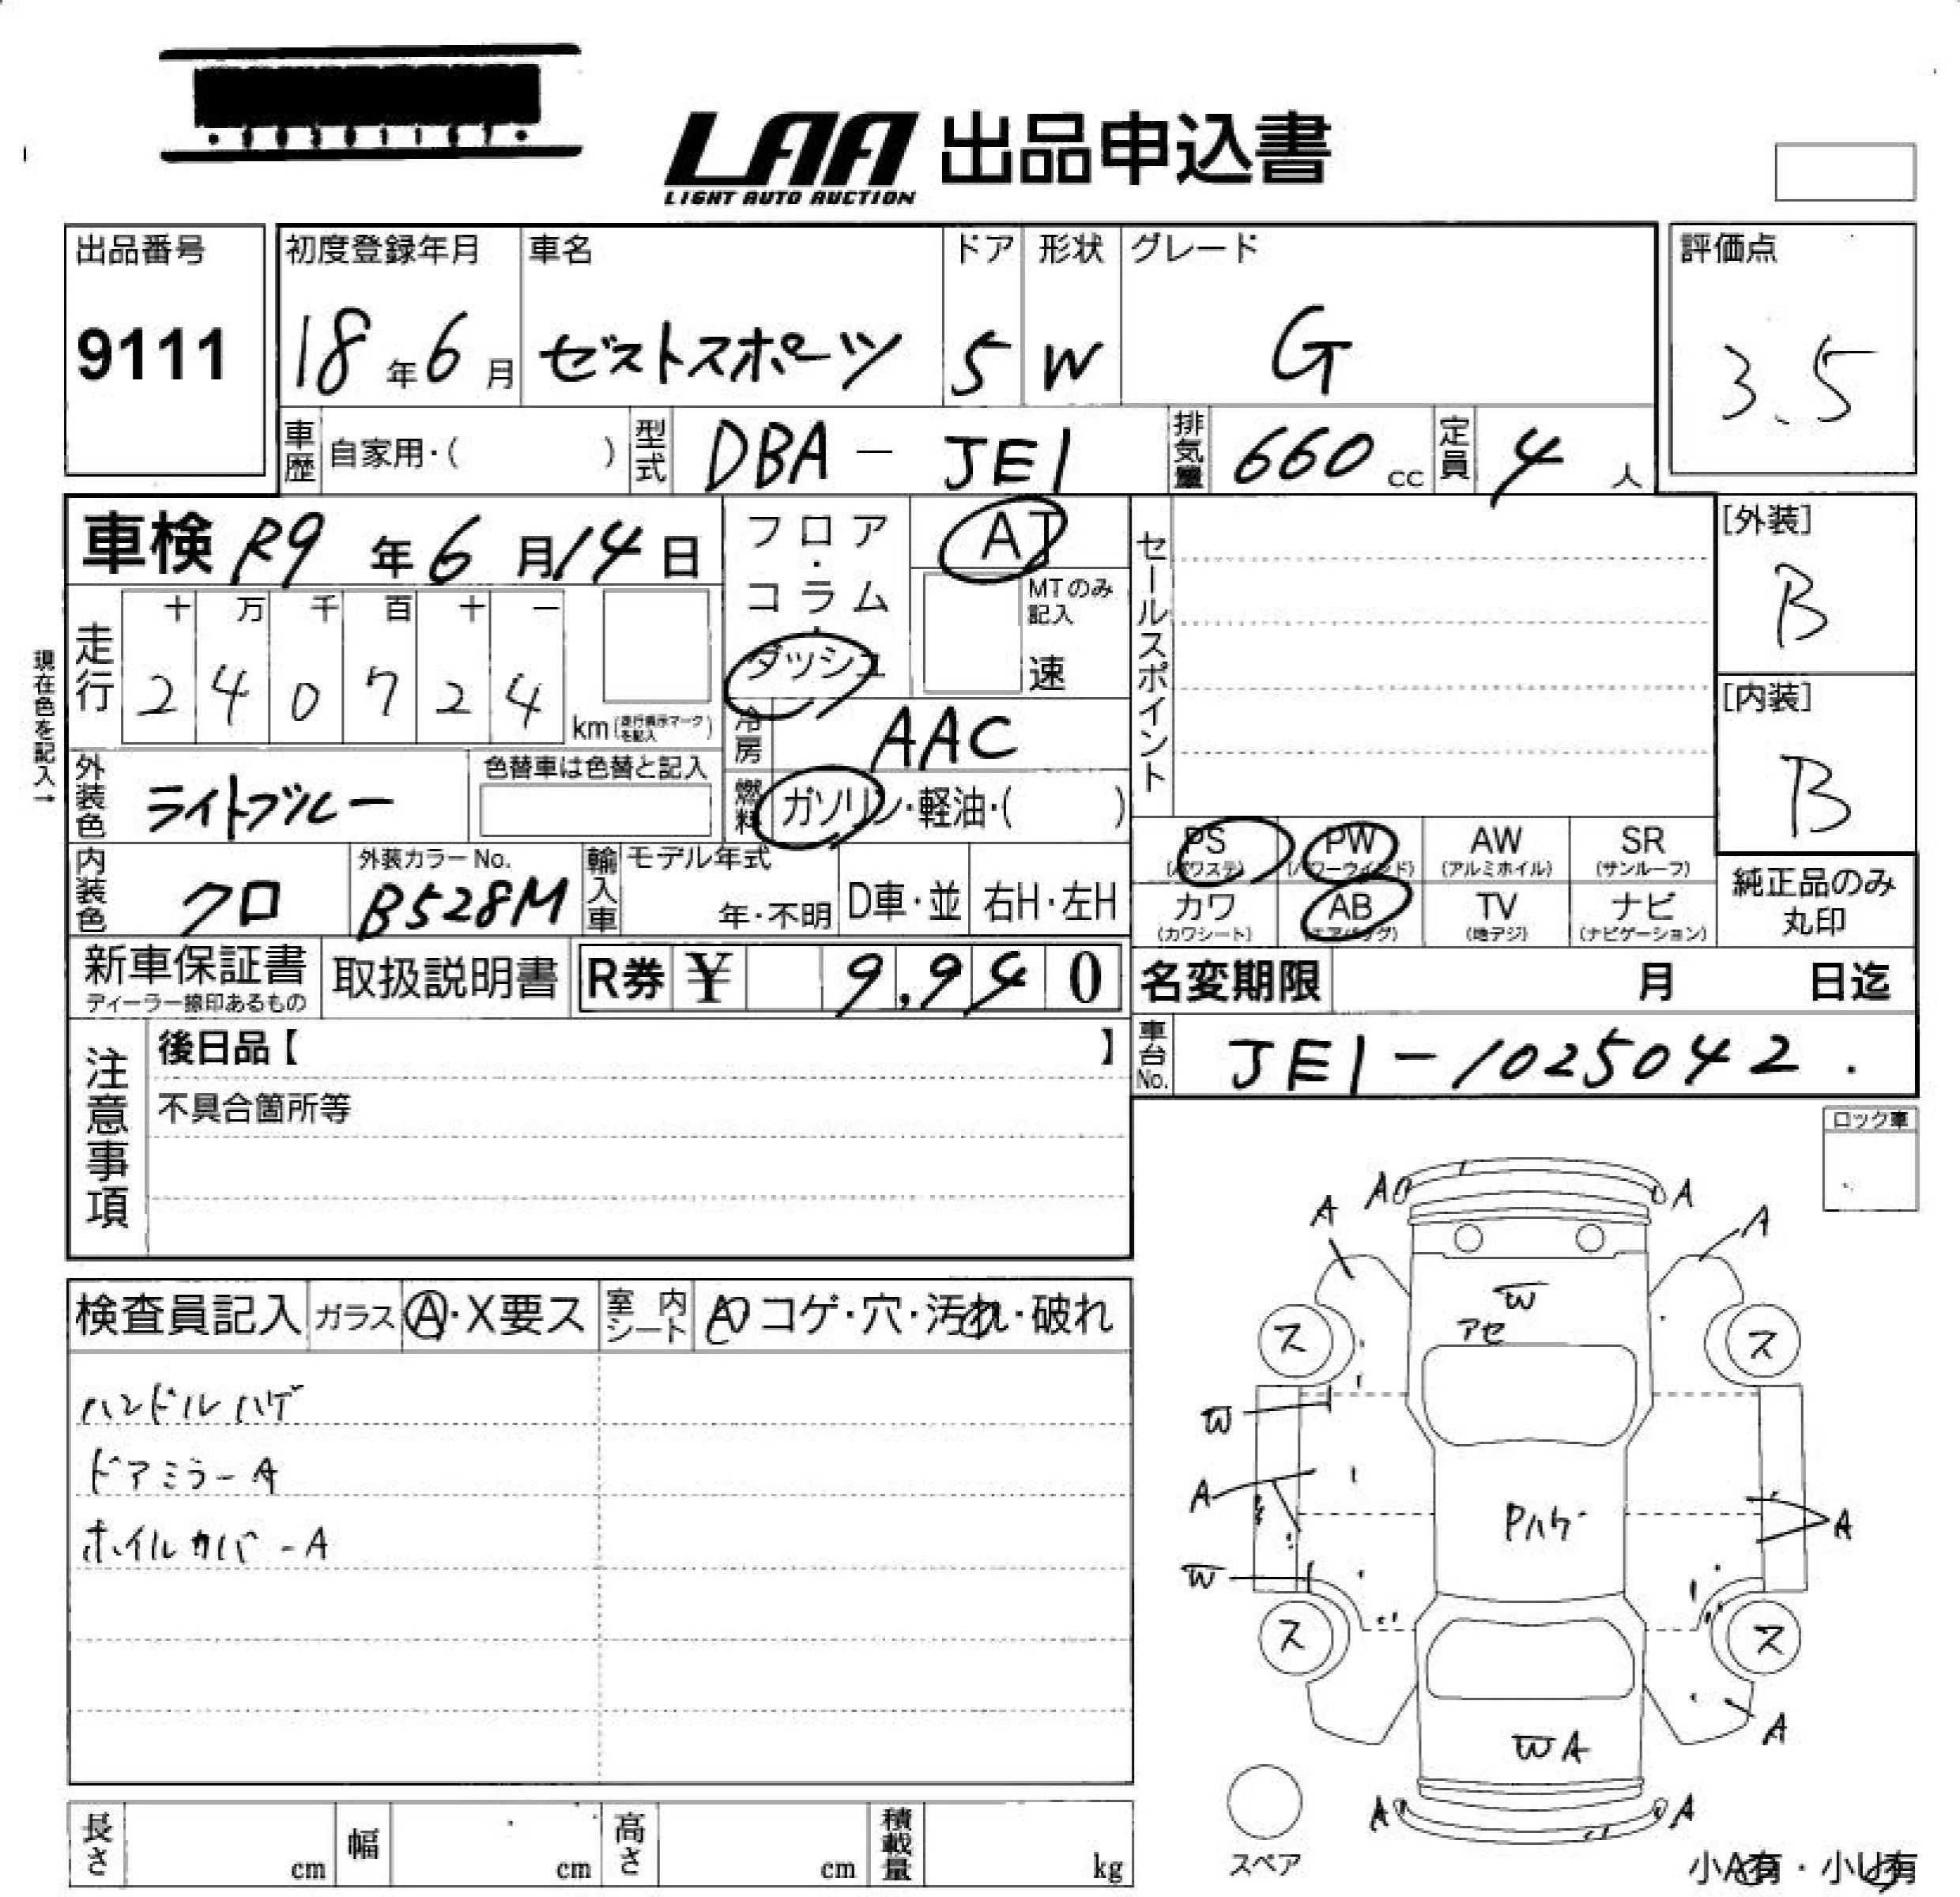 LAA 出品申込書
LIGHT AUTO AUCTION
出品番号
9111
初度登録年月
18年6月
車名
ゼストスポーツ
ドア
5
形状
W
グレード
G
評価点
3.5
車歴 自家用・( )
型式 DBA - JE1
排気量 660 cc
定員 4 人
車検 R9年6月14日
フロア・コラム・ダッシュ
AT
MTのみ記入
速
セールスポイント
[外装]
B
[内装]
B
現在色を記入→
走行
十 万 千 百 十 一
2 4 0 7 2 4
km(走行表示マークを記入)
冷房 AAC
外装色 ライトブルー
色替車は色替と記入
燃料 ガソリン・軽油・( )
内装色 クロ
外装カラーNo.
B528M
輸入車 モデル年式
年・不明
D車・並
右H・左H
PS (パワステ)
PW (パワーウインド)
AW (アルミホイル)
SR (サンルーフ)
カワ (カワシート)
AB (エアバッグ)
TV (地デジ)
ナビ (ナビゲーション)
純正品のみ
丸印
新車保証書
ディーラー捺印あるもの
取扱説明書
R券 ¥ 9,940
名変期限 月 日迄
車台No. JE1-1025042.
注意事項
後日品【 】
不具合箇所等
ロック車
検査員記入
ガラス A・X要ス
室内シート A コゲ・穴・汚れ・破れ
ハンドルハゲ
ドアミラーA
ホイルカバーA
A A
A A
W
アセ
ス ス
W
A
Pハゲ
A
W
ス ス
WA
A
A A
スペア
小A有・小U有
長さ cm
幅 cm
高さ cm
積載量 kg